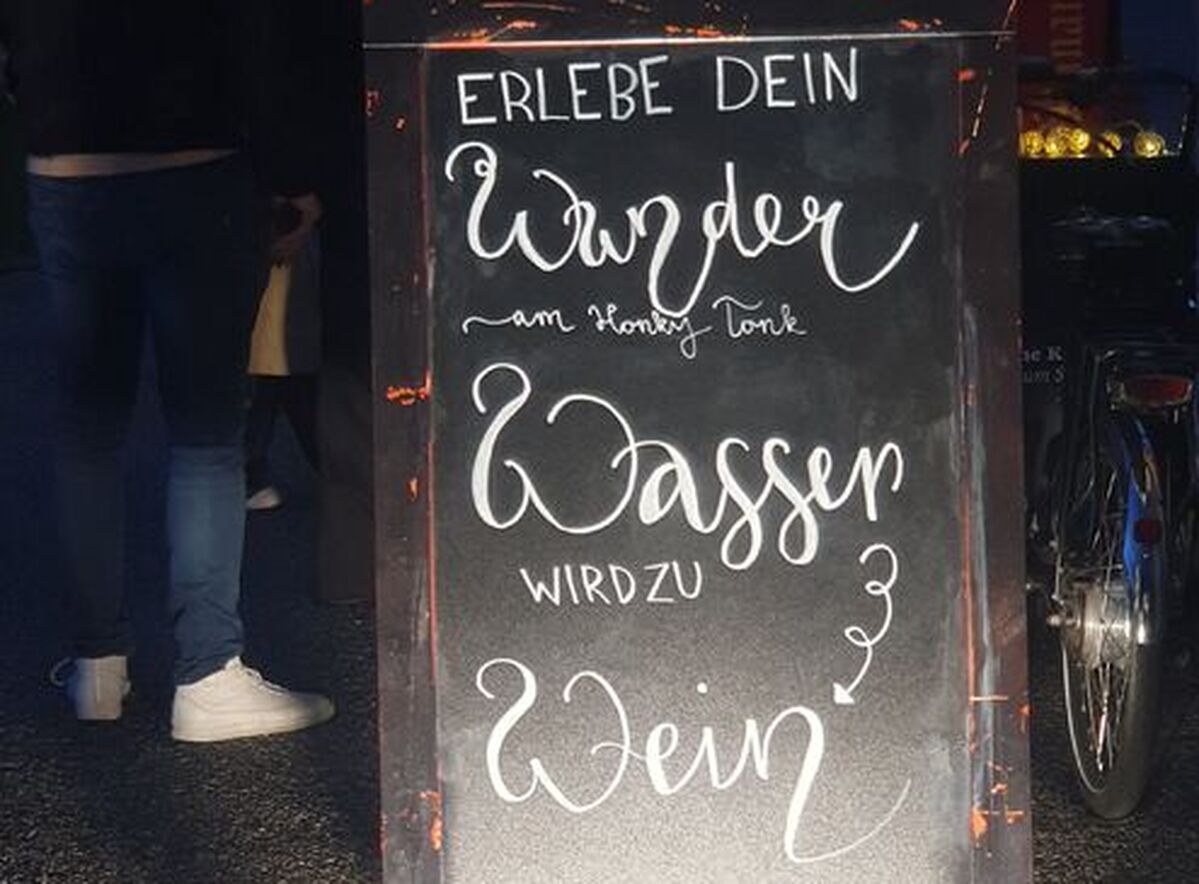 ERLEBE DEIN
Wunder
am Honky Tonk
Wasser
WIRD ZU
Wein